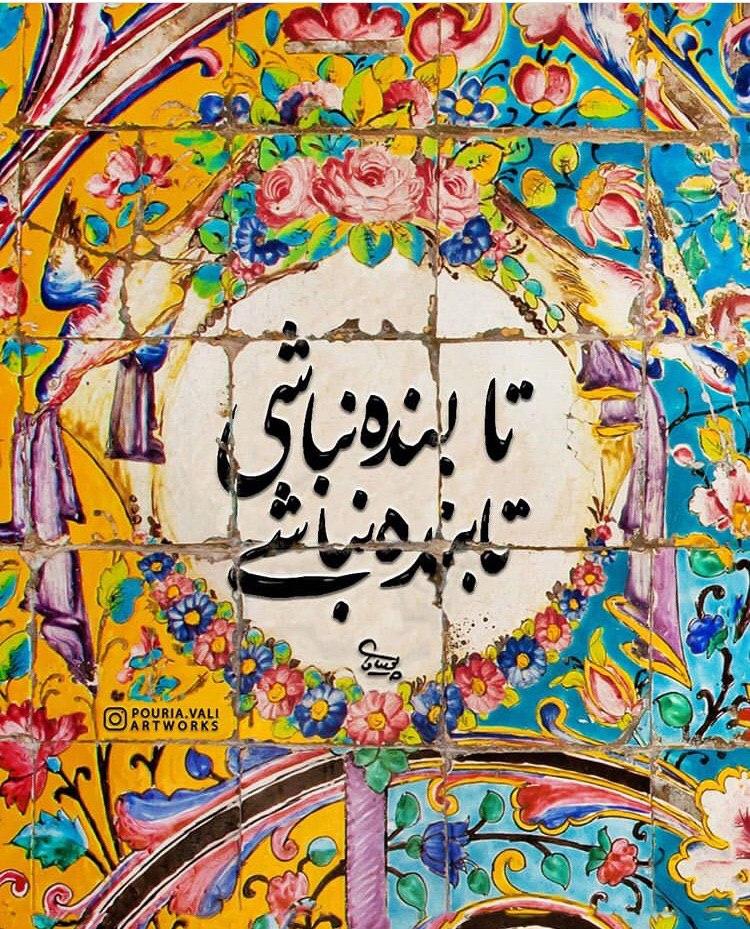 تا بنده نباشی
تابنده نباشی
پوریا ولی
POURIA.VALI
ARTWORKS